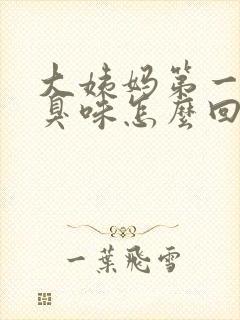 大姨妈第一
臭咪怎麼回
一葉飛雪